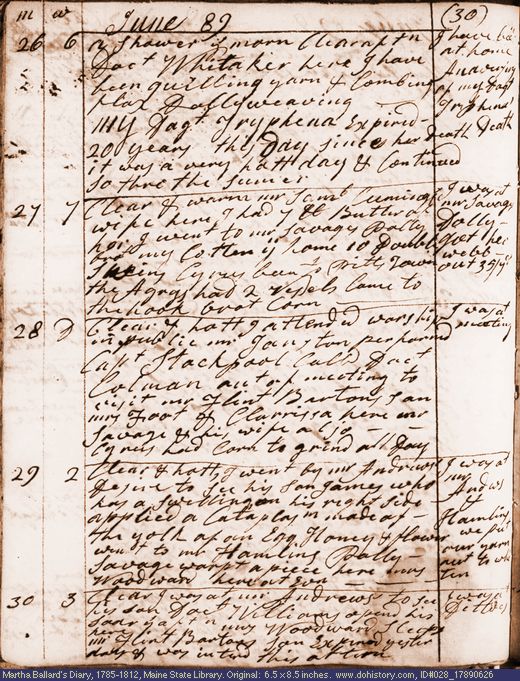 m w June 89 (30)
26 6 a Shower Smorn Clear aftn I have been
Doct Whitaker here I have at home
been quilling yarn & Combing Aniversary
flax Dolly weaving of my Dagt
My Dagt Tryphena Expird Tryphena's
20 years this Day since her Death Death
it was a very hott day & Continued
so thro the sumer
27 7 Clear & warm mr Saml Cumings I was at
wife here I had 7 lb Butter of mr Savages
her I went to mr Savages Dolly Dolly
brot my Cotten home 10 Double got her
Skeins Cyrus been to Pitts Town webb
the Agry had 2 vesels come to out 35 yds
the hook brot Corn
28 D Clear & hott I attend worship I was at
in publice mr Langton performd meeting
Capt Stackpool Calld Doct
Colman out of meeting to
visit mr Flint Bartons son
mr Foot & Clarrissa here mr
Savage & his wife also
Cyrus had Corn to grind all Day
29 2 Clear & hott, I went by mr Andrews I was at
desire to see his son James who mr
has a swelling on his right side Andrws
applied a Cataplasm made of &
the yolk of an Egg Honey & flower Hamlins
went to mr Hamlins Dolly we put
Savage warpt a piece here mrs our yarn
Woodward here at Evn out to whi
ten
30 3 Clear I was at mr Andrews to see I was at
his son Doct Williams opens his Petteys
here mrs Woodward sleeps
mr Flint Bartons son Expird yester
day & was intrd this aftern
Martha Ballard's Diary, 1785-1812, Maine State Library. Original: 6.5 x 8.5 inches. www.dohistory.com, ID#028_17890626